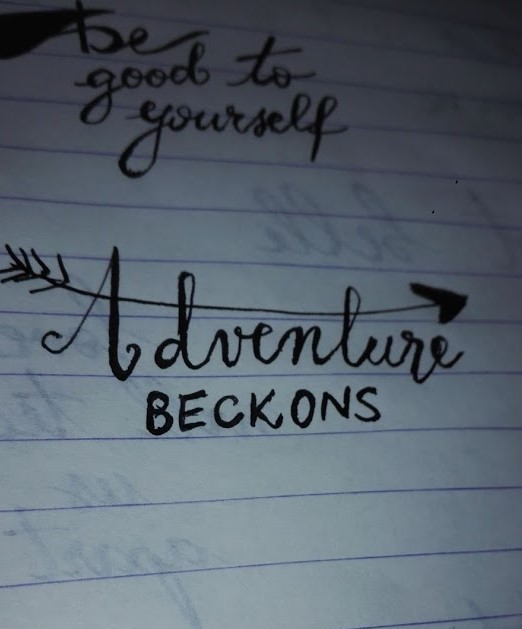 be
good to
yourself
Adventure
BECKONS